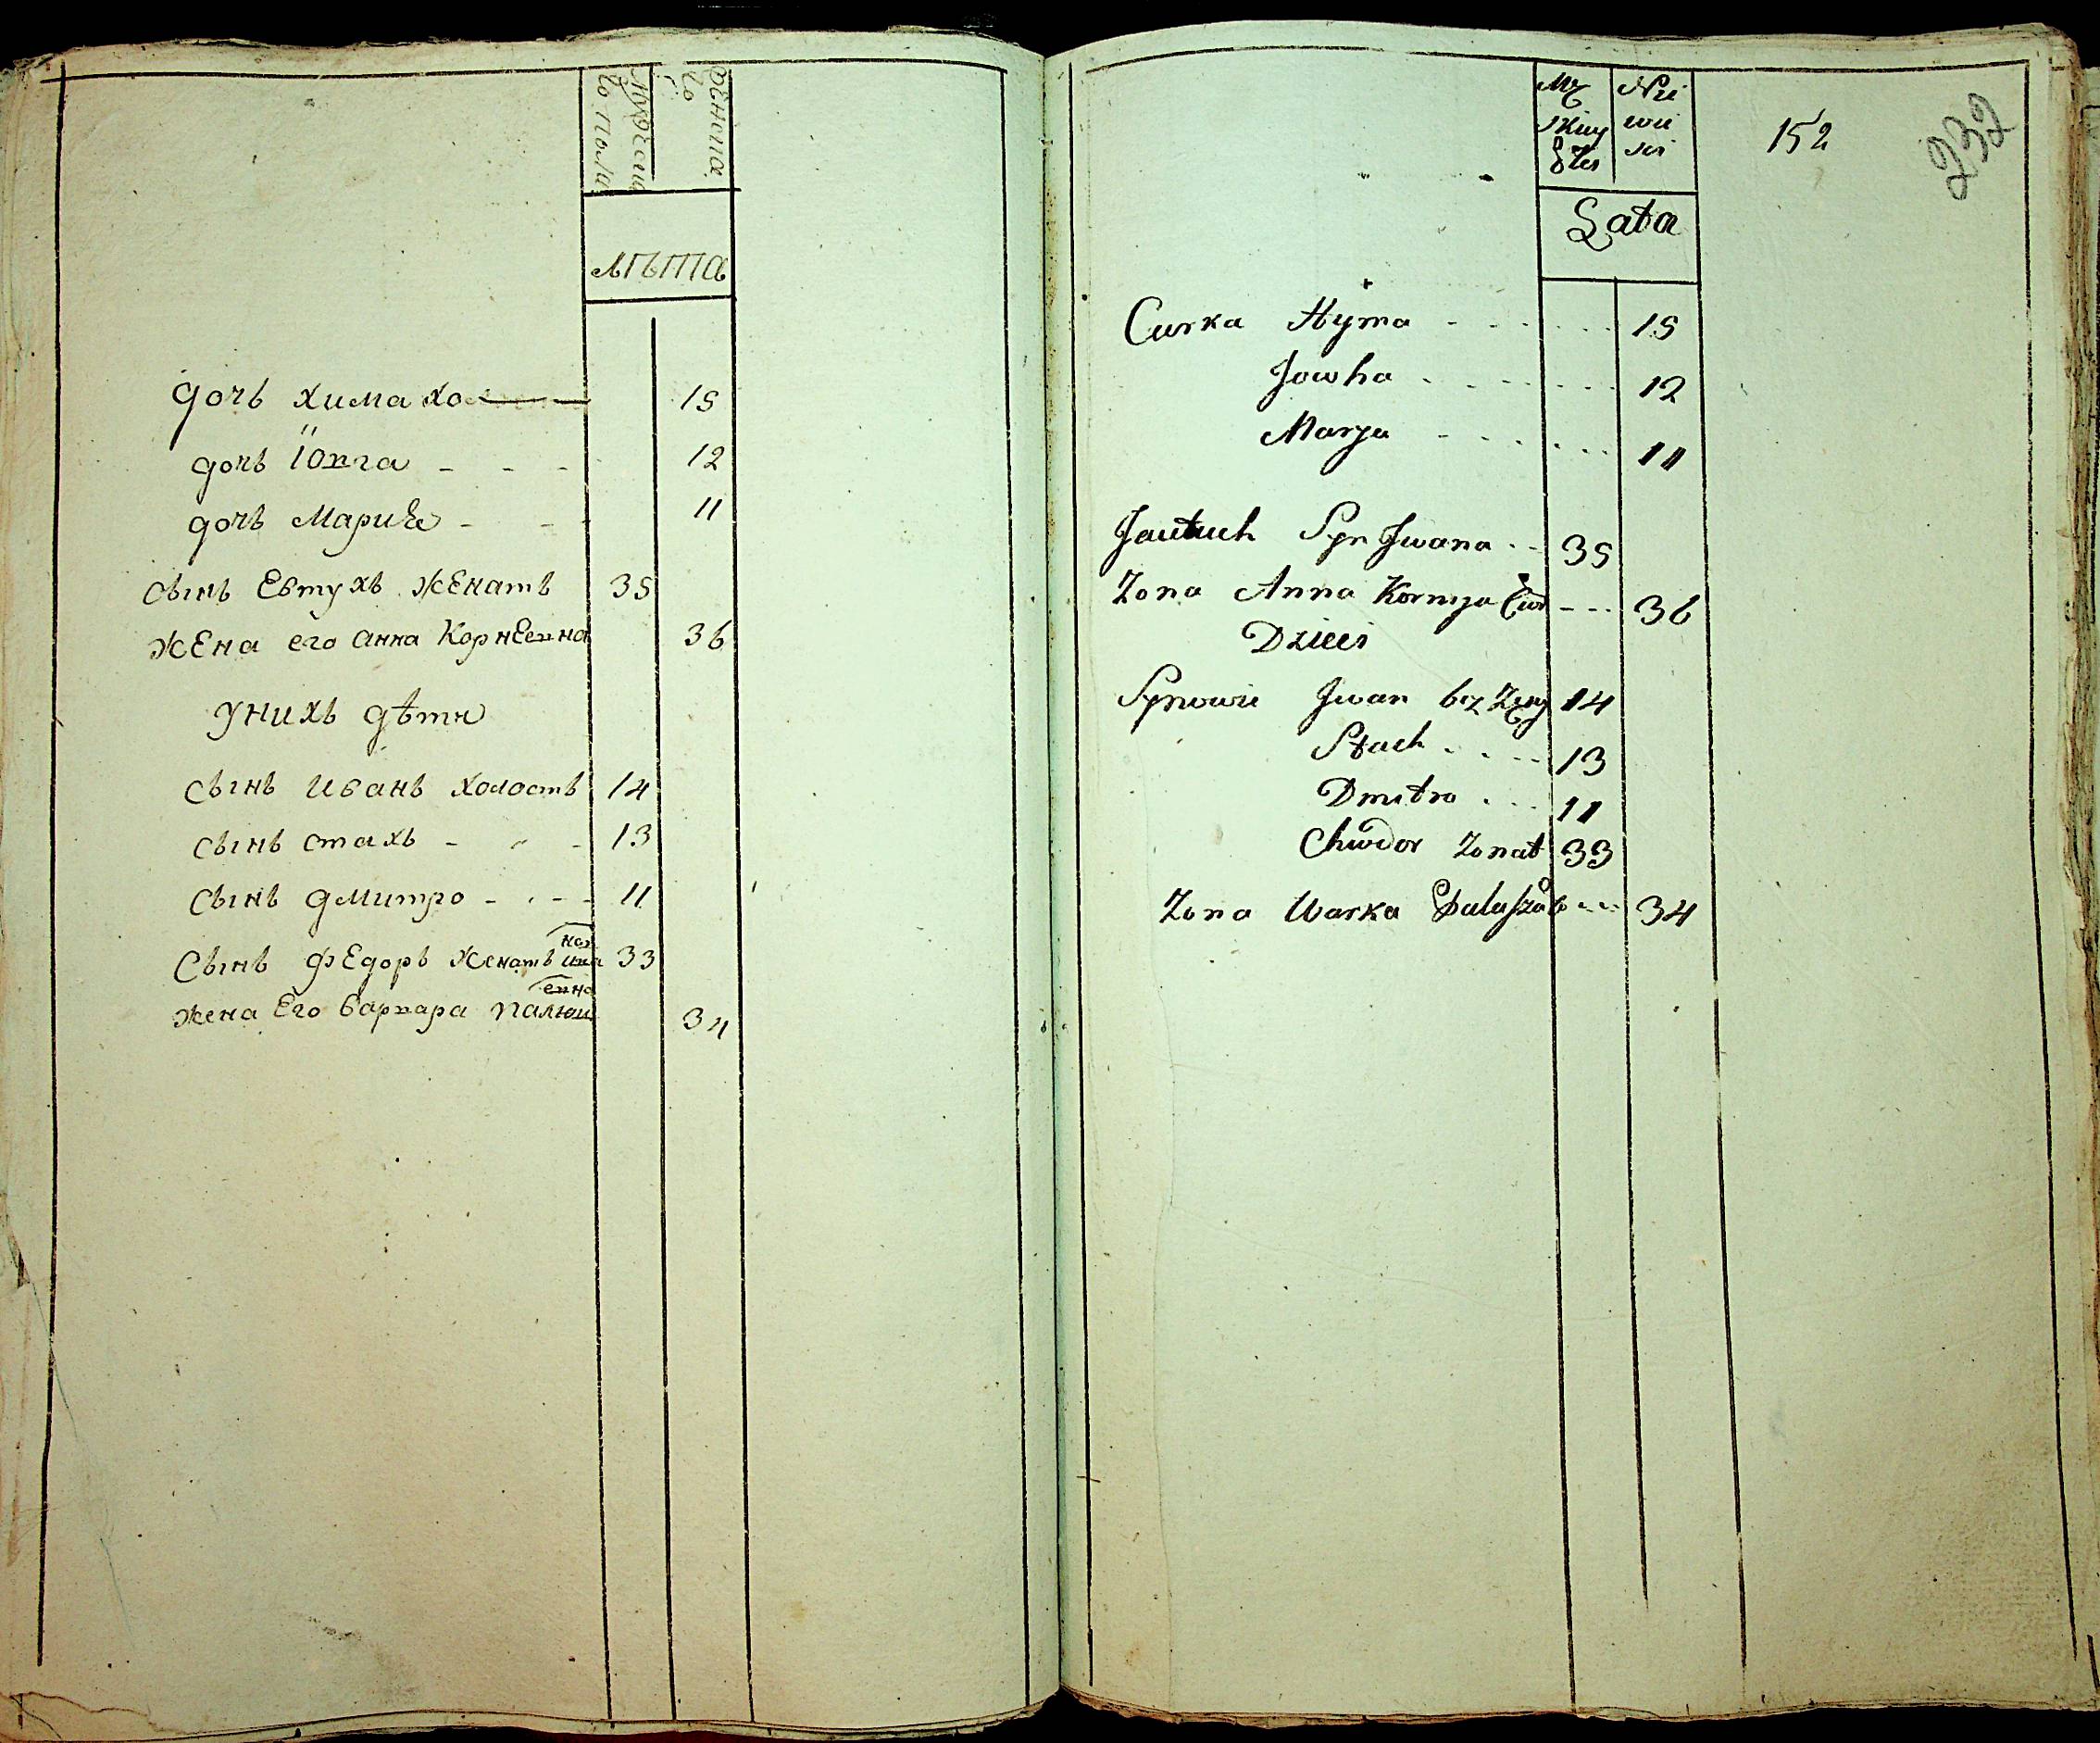 Мужеска
го пола
Женска
го
лѣта
дочь хима хо 15
дочь Юхга - - - 12
дочь Мариѣ - - 11
сынъ Евтухъ женатъ 35
жена его анна Корнеевна 36
у нихъ дѣти
сынъ иванъ холостъ 14
сынъ стахъ - - - 13
сынъ дмитро - - - 11
Сынъ Федоръ женатъ 33
жена Его варвара 34
Mę Nie
skiey wie
Płci sci
152
232
Lata
Curka Hyma - - - - - - 15
Jowha - - - - - - - 12
Marya - - - - - - - 11
Jautuch Syn Jwana - - 35
Zona Anna Kornyia Cur - - - 36
Dzieci
Synowie Jwan bez Zeny 14
Stach - - - - 13
Dmitro - - - 11
Chwedor Zonat 33
Zona Warka - - - 34